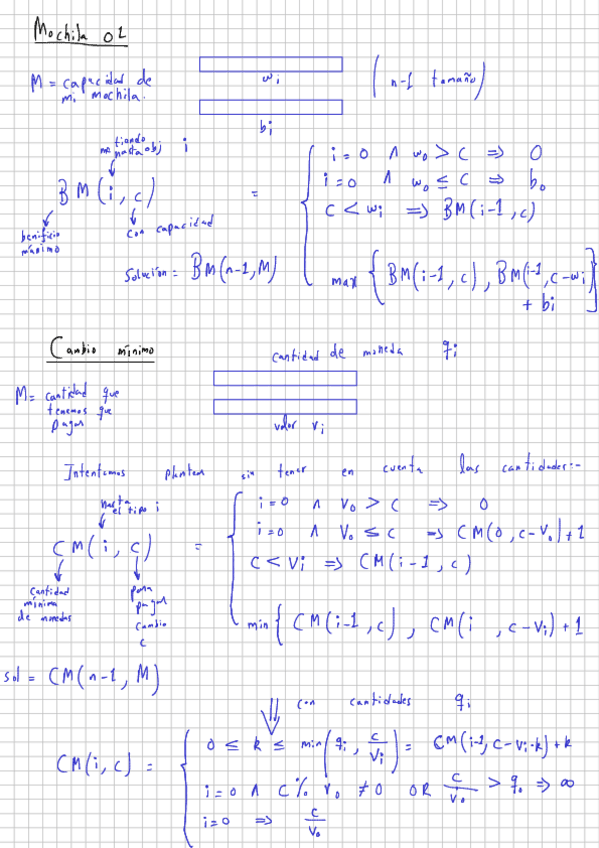 Mochila 01
M = capacidad de
mi mochila.
wi
(n-1 tamaño)
bi
tiendo
hasta obj i
BM(i, c) =
benificio
máximo
con capacidad
Solución = BM(n-1, M)
i = 0 ∧ w0 > c ⇒ 0
i = 0 ∧ w0 ≤ c ⇒ b0
c < wi ⇒ BM(i-1, c)
max { BM(i-1, c) , BM(i-1, c-wi)
+ bi }
Cambio mínimo
cantidad de moneda qi
M = cantidad que
tenemos que
pagar
valor vi
Intentamos plantear sin tener en cuenta las cantidades:-
hasta
el tipo i
CM(i, c) =
cantidad
mínima
de monedas
para
pagar
cambio
c
i = 0 ∧ v0 > c ⇒ 0
i = 0 ∧ v0 ≤ c ⇒ CM(0, c-v0) + 1
c < vi ⇒ CM(i-1, c)
min { CM(i-1, c) , CM(i , c-vi) + 1
sol = CM(n-1, M)
⇓ con cantidades qi
CM(i, c) =
0 ≤ k ≤ min(qi, c/vi) = CM(i-1, c-vi·k) + k
i = 0 ∧ c % v0 ≠ 0 OR c/v0 > q0 ⇒ ∞
i = 0 ⇒ c/v0